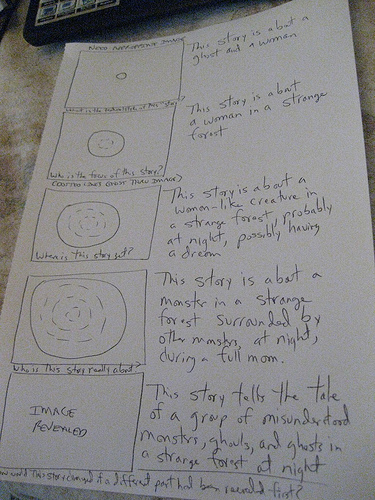 This story is about a
ghost and a woman
What is the
of this story?
This story is about
a woman in a strange
forest
Who is the focus of this story?
This story is about a
woman-like creature in
a strange forest, probably
at night, possibly having
a dream
When is this story set?
This story is about a
monster in a strange
forest surrounded by
other monsters, at night,
during a full moon.
Who is this story really about?
IMAGE
REVEALED
This story tells the tale
of a group of misunderstood
monsters, ghouls, and ghosts in
a strange forest at night
would this story changed if a different part had been revealed first?